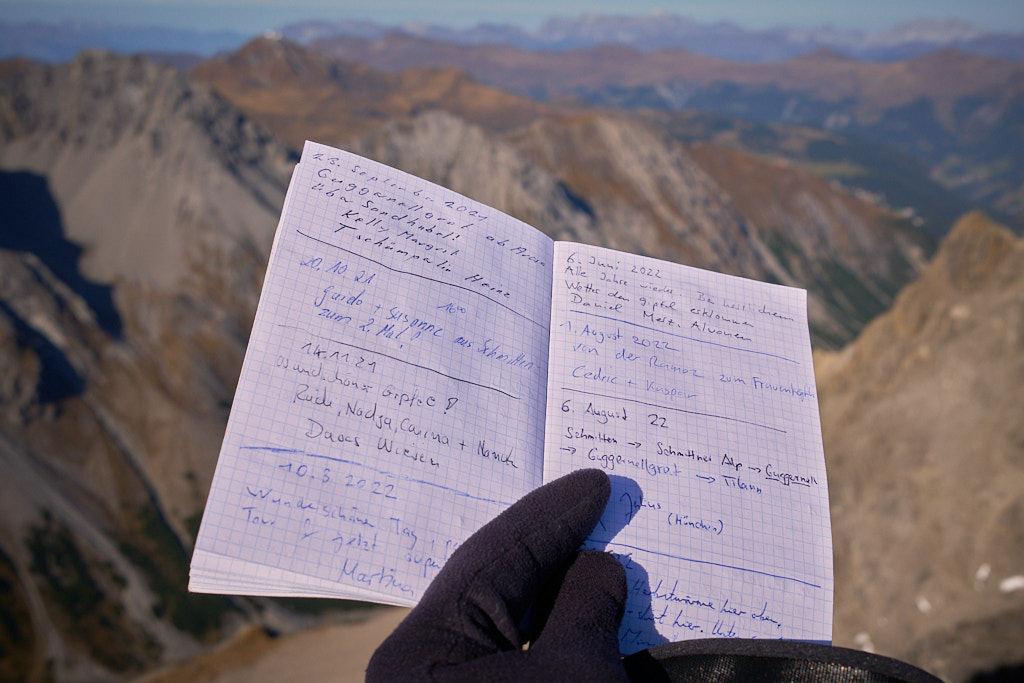 23. September 2021
Guggernellgrat ab Arosa
über Sandhubel!
Kelly Margrit
Tschümperlin Heinz
20.10.21
Guido + Susanne aus Schmitten
zum 2. Mal!
14.11.21
Wundischöne Gipfel!
Ruedi, Nadja, Carina +
Davos Wiesen
10.3.2022
Wunderschöne Tag,
Tour & jetzt
Martina
6. Juni 2022
Alle Jahre wieder. Bei
Wetter den Gipfel erklommen
Daniel Alvaneu
1. August 2022
von der Ramoz zum
Cedric +
6. August 22
Schmitten → Schmittner Alp → Guggernell
→ Guggernellgrat →
(München)
hier oben,
hier.